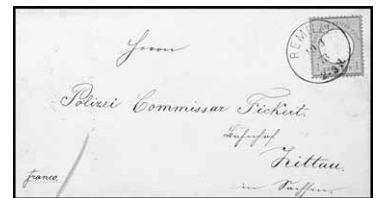 Herrn
Polizei Commissar Fickert.
Bahnhof
Zittau.
in Sachsen
franco.